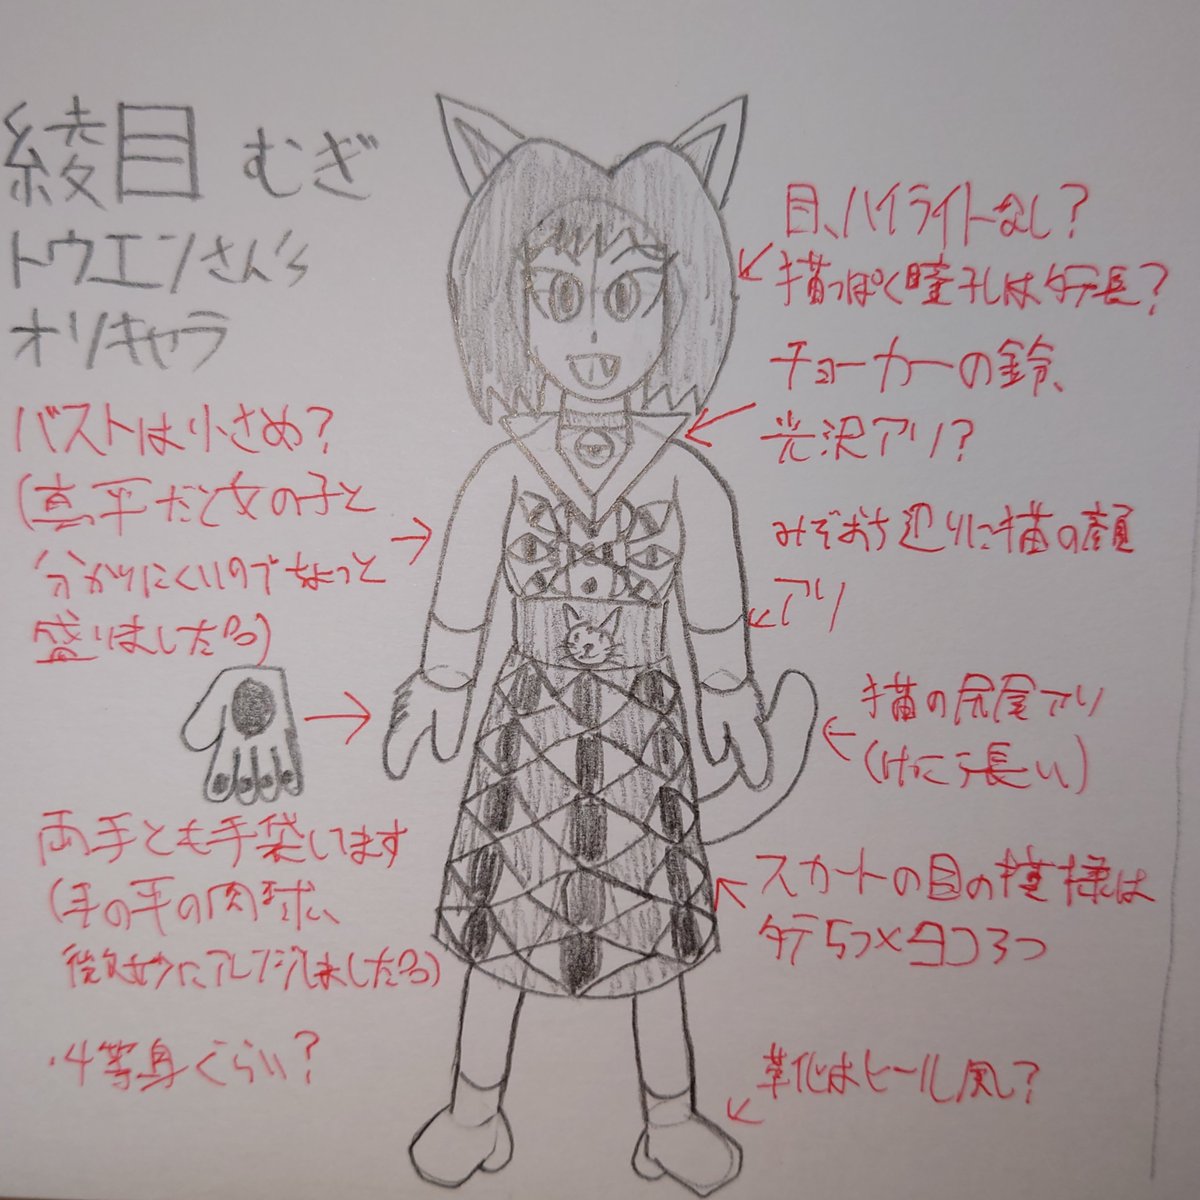 綾目 むぎ
トウエンさん's
オリキャラ
バストは小さめ?
(真っ平だと女の子と
分かりにくいのでちょっと
盛りました
目、ハイライトなし?
猫っぽく瞳孔はタテ長?
チョーカーの鈴、
光沢アリ?
みぞおち辺りに猫の顔
アリ
猫の尻尾アリ
(けっこう長い)
両手とも手袋います
(手の平の肉球、
微妙にアレンジしました
スカートの目の模様は
タテ5つ×ヨコ3つ
・4等身ぐらい?
革化はヒール風?